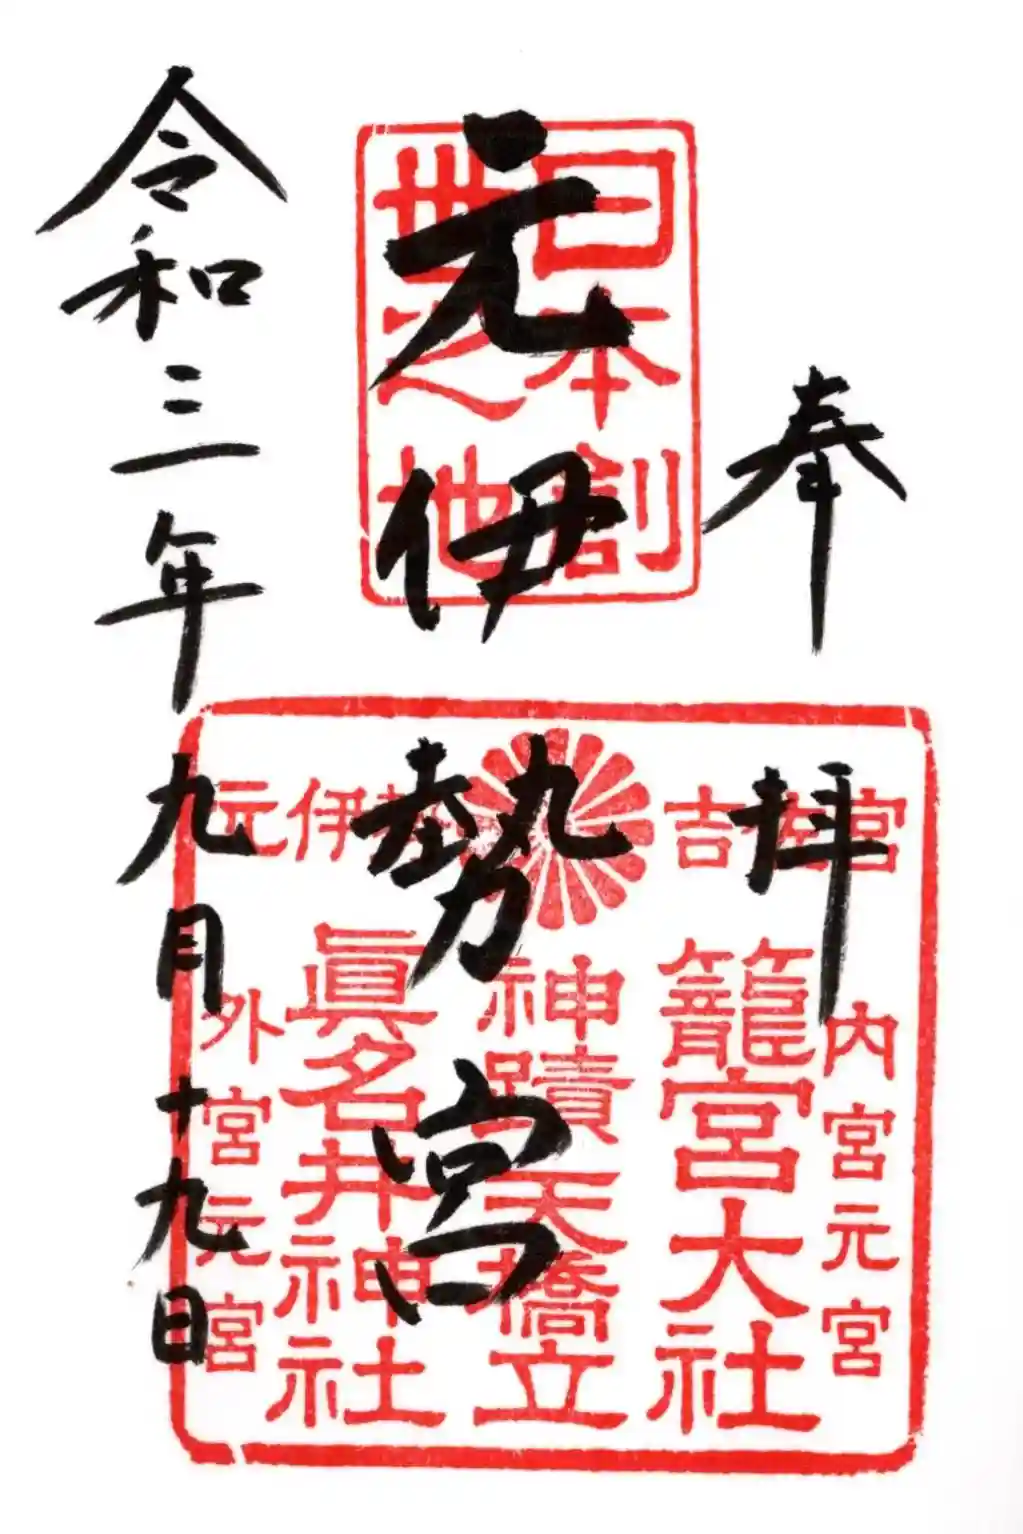 奉拝
元伊勢宮
令和三年九月十九日
日本創
世之地
元伊勢 吉佐宮
内宮元宮
籠宮大社
神蹟天橋立
眞名井神社
外宮元宮